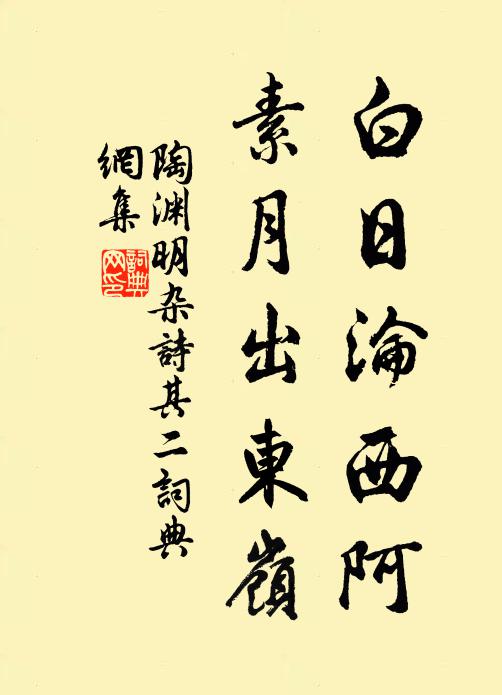 白日淪西阿
素月出東嶺
陶渊明杂詩其二詞典
網集
詞典
网印